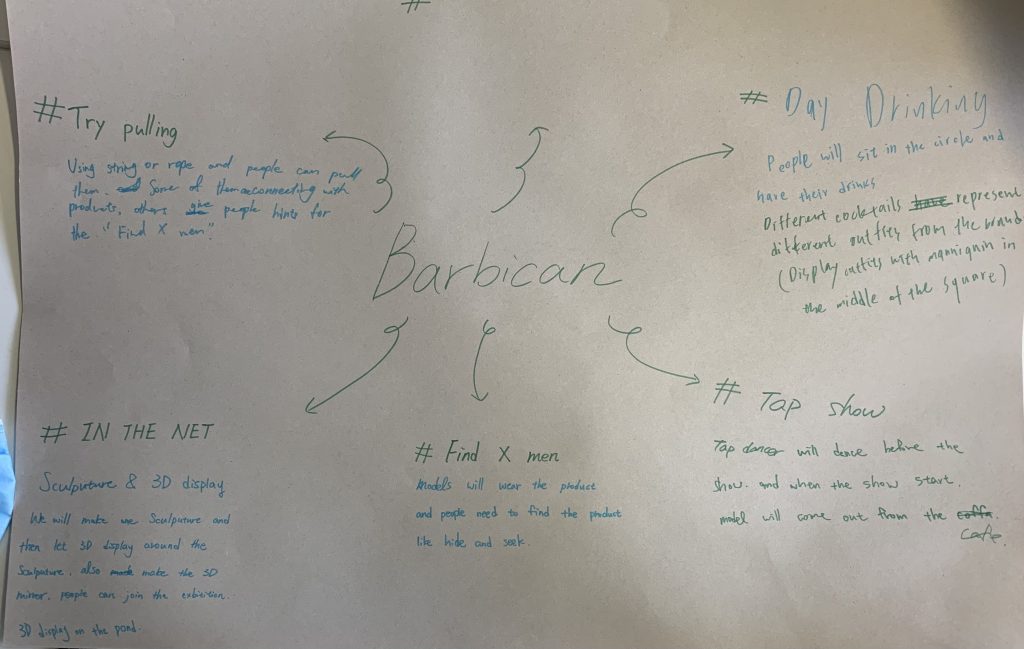 #
# Try pulling
Using string or rope and people can pull
them. Some of them are connecting with
products, others give people hints for
the "Find X men".
# Day Drinking
People will sit in the circle and
have their drinks
Different cocktails have represent
different outfits from the brand
(Display outfits with manniquin in
the middle of the square)
Barbican
# IN THE NET
Sculputure & 3D display
We will make one Sculputure and
then let 3D display around the
Sculputure. also make the 3D
mirror. people can join the exbisition.
3D display on the pond.
# Find X men
Models will wear the product
and people need to find the product
like hide and seek.
# Tap show
Tap dancer will dance before the
show. and when the show start.
model will come out from the
cafe.